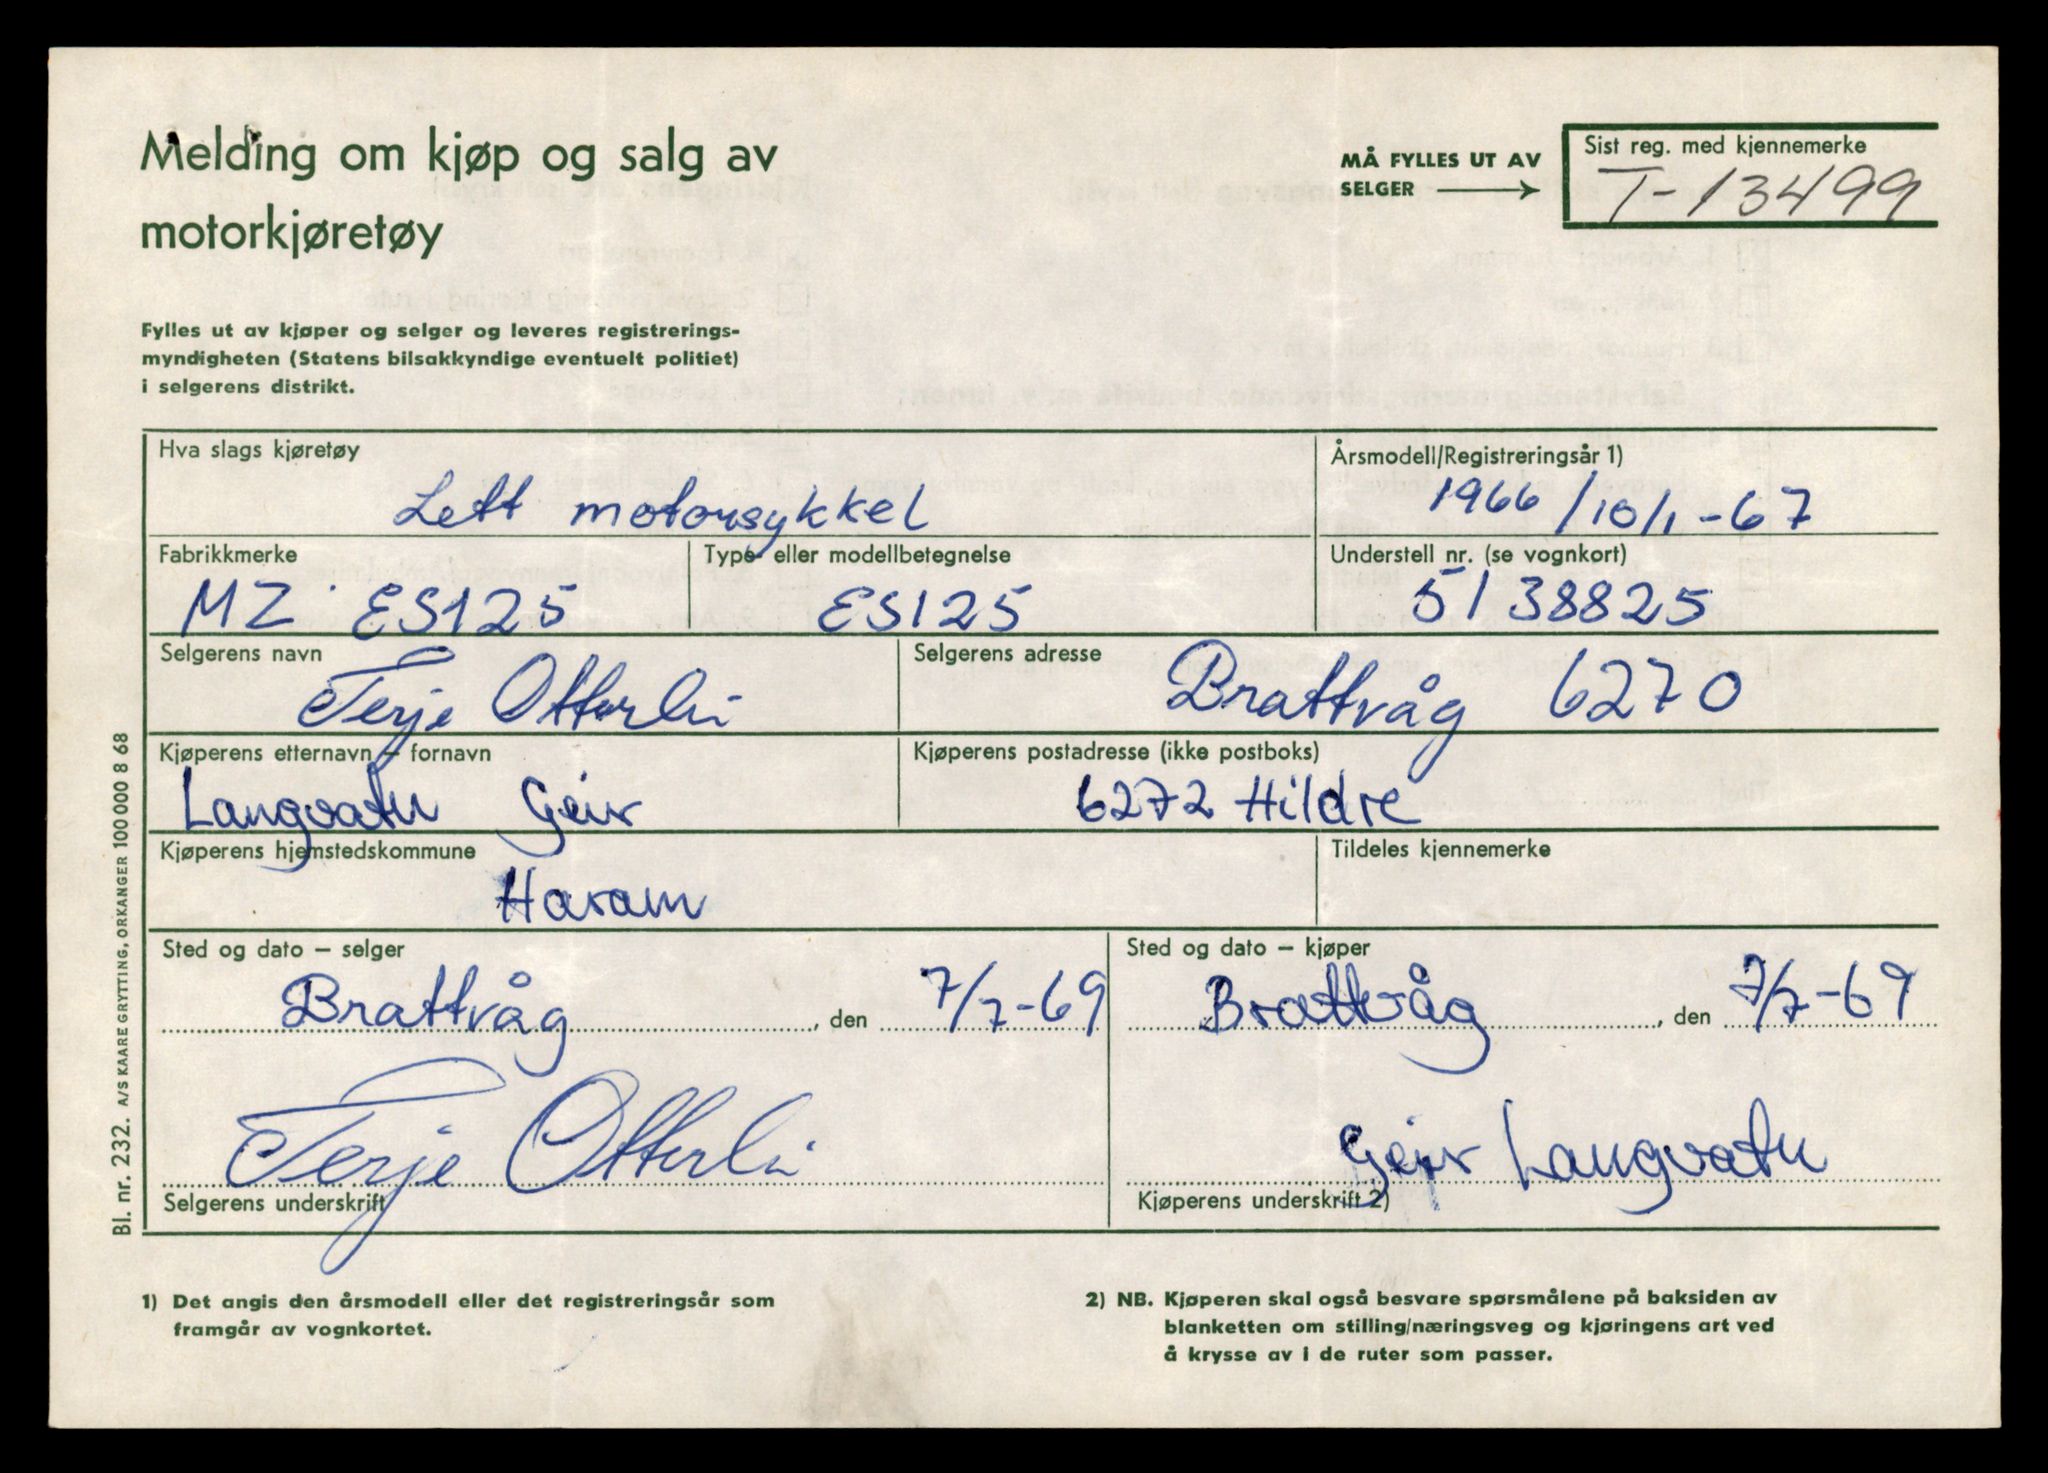 Melding om kjøp og salg av
motorkjøretøy
MÅ FYLLES UT AV
SELGER
Sist reg. med kjennemerke
T-13499
Fylles ut av kjøper og selger og leveres registrerings-
myndigheten (Statens bilsakkyndige eventuelt politiet)
i selgerens distrikt.
Hva slags kjøretøy
Lett motorsykkel
Årsmodell/Registreringsår 1)
1966/10/1-67
Fabrikkmerke
MZ ES125
Type- eller modellbetegnelse
ES125
Understell nr. (se vognkort)
5138825
Selgerens navn
Terje Otterlei
Selgerens adresse
Brattvåg 6270
Kjøperens etternavn – fornavn
Langvatn Geir
Kjøperens postadresse (ikke postboks)
6272 Hildre
Kjøperens hjemstedskommune
Haram
Tildeles kjennemerke
Sted og dato – selger
Brattvåg, den 7/7-69
Sted og dato – kjøper
Brattvåg, den 7/7-69
Terje Otterlei
Selgerens underskrift
Geir Langvatn
Kjøperens underskrift 2)
1) Det angis den årsmodell eller det registreringsår som
framgår av vognkortet.
2) NB. Kjøperen skal også besvare spørsmålene på baksiden av
blanketten om stilling/næringsveg og kjøringens art ved
å krysse av i de ruter som passer.
Bl. nr. 232. A/S KAARE GRYTTING, ORKANGER 100 000 8 68